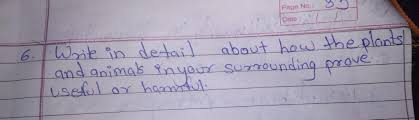 Page No.:
Date: / /
6. Write in detail about how the plants
and animals in your surrounding prove
useful or harmful.